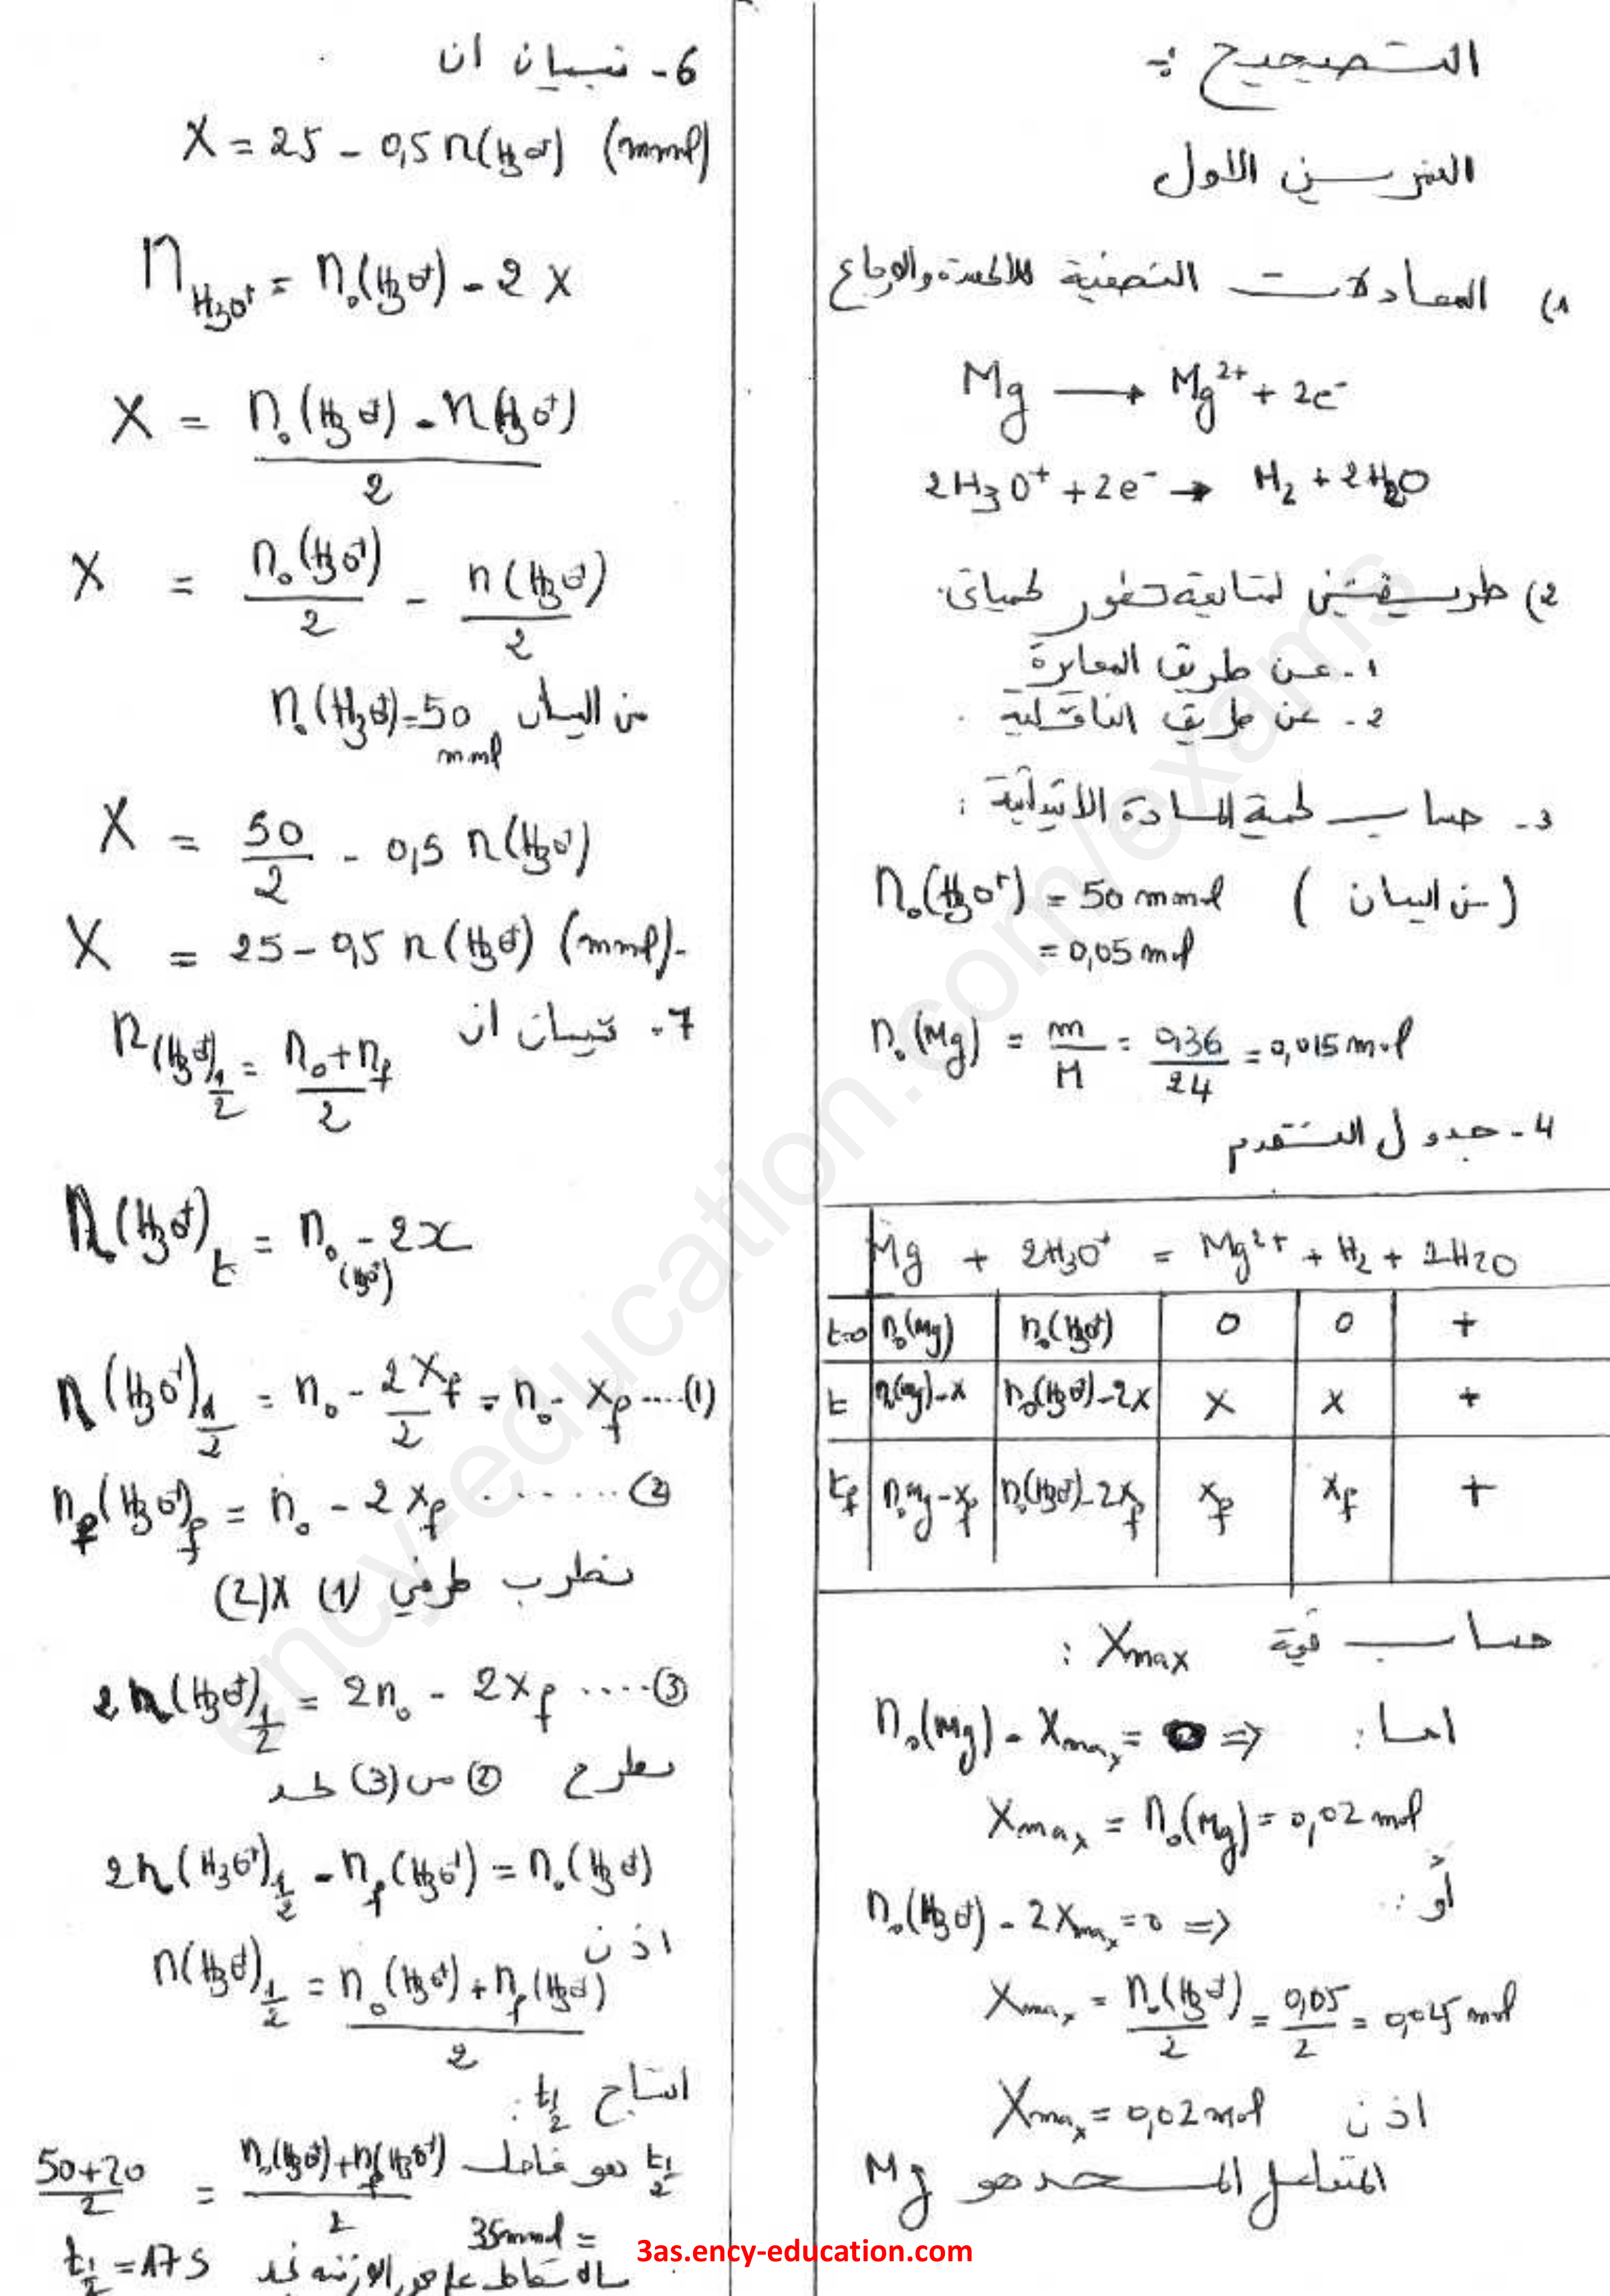 التصحيح :
التمرين الاول
1) المعادلات النصفية للاكسدة والارجاع
Mg → Mg²⁺ + 2e⁻
2H₃O⁺ + 2e⁻ → H₂ + 2H₂O
2) طريقتين لمتابعة تطور كميائي.
1- عن طريق المعايرة
2- عن طريق الناقلية .
3- حساب كمية المادة الابتدائية :
n₀(H₃O⁺) = 50 mmol ( من البيان )
= 0,05 mol
n₀(Mg) = m/M = 0,36/24 = 0,015 mol
4- جدول التقدم
Mg + 2H₃O⁺ = Mg²⁺ + H₂ + 2H₂O
t=0 n₀(Mg) n₀(H₃O⁺) 0 0 +
t n₀(Mg)-x n₀(H₃O⁺)-2x x x +
tf n₀Mg-xf n₀(H₃O⁺)-2xf xf xf +
حساب قيمة Xmax :
اما : n₀(Mg) - Xmax = 0 ⇒
Xmax = n₀(Mg) = 0,02 mol
أو :
n₀(H₃O⁺) - 2Xmax = 0 ⇒
Xmax = n₀(H₃O⁺)/2 = 0,05/2 = 0,025 mol
اذن Xmax = 0,02 mol
المتفاعل المحد هو Mg
6- تبيان ان
X = 25 - 0,5 n(H₃O⁺) (mmol)
n H₃O⁺ = n₀(H₃O⁺) - 2X
X = (n₀(H₃O⁺) - n(H₃O⁺))/2
X = n₀(H₃O⁺)/2 - n(H₃O⁺)/2
من البيان n₀(H₃O⁺) = 50 mmol
X = 50/2 - 0,5 n(H₃O⁺)
X = 25 - 0,5 n(H₃O⁺) (mmol).
7- تبيان ان n(H₃O⁺)1/2 = (n₀+nf)/2
n(H₃O⁺)t = n₀(H₃O⁺) - 2x
n(H₃O⁺)1/2 = n₀ - 2Xf/2 = n₀ - Xf ....(1)
nf(H₃O⁺)f = n₀ - 2Xf ........(2)
نظرب طرفي (1) X(2)
2n(H₃O⁺)1/2 = 2n₀ - 2Xf ....(3)
نطرح (2) من (3) نجد
2n(H₃O⁺)1/2 - nf(H₃O⁺) = n₀(H₃O⁺)
اذن
n(H₃O⁺)1/2 = (n₀(H₃O⁺) + nf(H₃O⁺))/2
t1/2 :
t1/2 هو (n₀(H₃O⁺)+nf(H₃O⁺))/2 = (50+20)/2
= 35mmol
بالاسقاط على محور الازمنة نجد t1/2 = 17 s
3as.ency-education.com
ency-education.com/exams